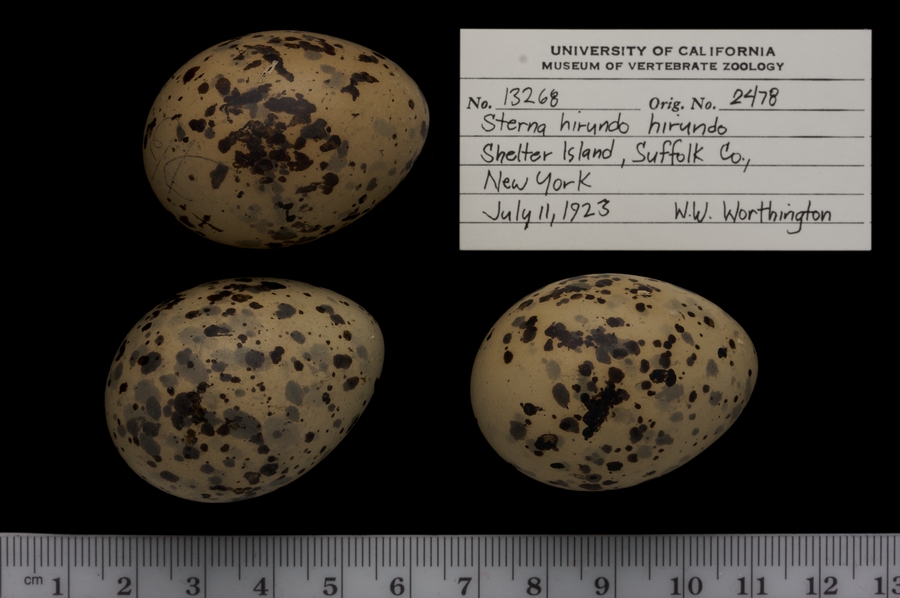 UNIVERSITY OF CALIFORNIA
MUSEUM OF VERTEBRATE ZOOLOGY
No. 13268 Orig. No. 2478
Sterna hirundo hirundo
Shelter Island, Suffolk Co.,
New York
July 11, 1923 W.W. Worthington
cm 1 2 3 4 5 6 7 8 9 10 11 12 13